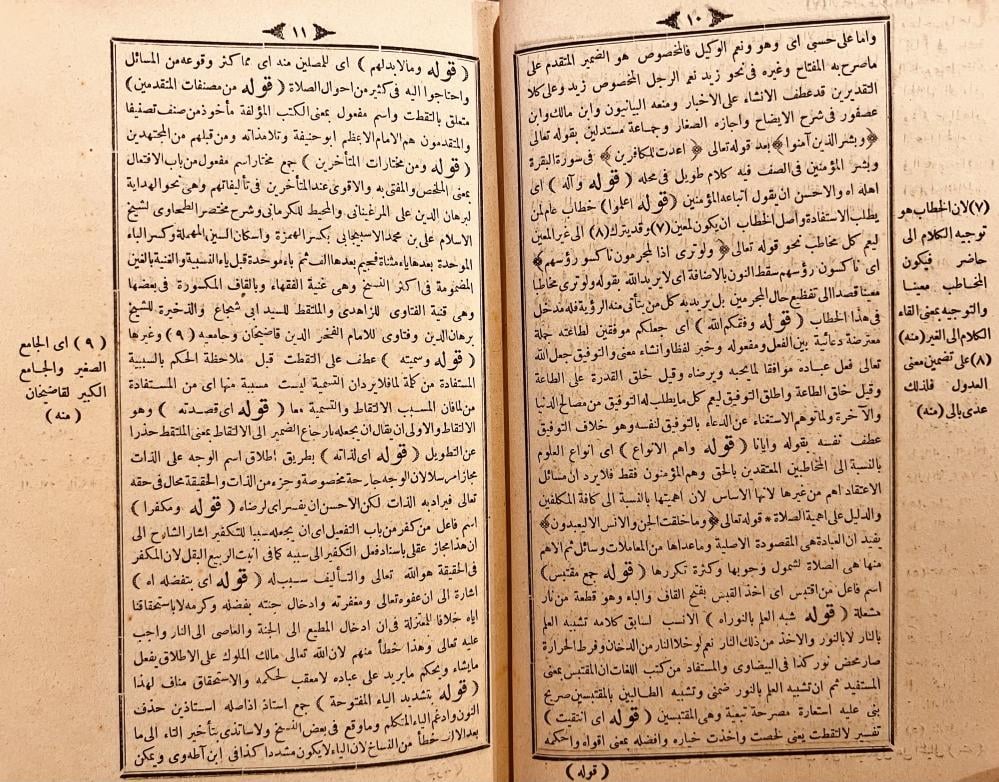 ١٠
واما على حسبى اى وهو ونعم الوكيل فالمخصوص هو الضمير المتقدم على
ماصرح به المفتاح وغيره فى نحو زيد نعم الرجل المخصوص زيد وعلى كلا
التقديرين قد عطف الانشاء على الاخبار ومنعه البيانيون وابن مالك وابن
عصفور فى شرح الايضاح واجازه الصفار وجماعة مستدلين بقوله تعالى
﴿وبشر الذين آمنوا﴾ بعد قوله تعالى ﴿اعدت للكافرين﴾ فى سورة البقرة
وبشر المؤمنين فى الصف فيه كلام طويل فى محله ( قوله وآله ) اى
اهله اه والاحسن ان يقول اتباعه المؤمنين ( قوله اعلموا ) خطاب عام لمن
يطلب الاستفادة واصل الخطاب ان يكون لمعين (٧) وقد يترك (٨) الى غير المعين
ليعم كل مخاطب نحو قوله تعالى ﴿ ولو ترى اذا لمجرمون ناكسو رؤسهم ﴾
اى ناكسون رؤسهم سقط النون بالاضافة اى لا يريد الله بقوله ولو ترى مخاطبا
معينا قصدا الى تفظيع حال المجرمين بل يريد به كل من يتأتى منه الرؤية فله مدخل
فى هذا الخطاب ( قوله وفقكم الله ) اى جعلكم موفقين لطاعته جملة
معترضة دعائية بين الفعل ومفعوله وخبر لفظا وانشاء معنى والتوفيق جعل الله
تعالى فعل عباده موافقا لما يحبه ويرضاه وقيل خلق القدرة على الطاعة
وقيل خلق الطاعة واطلق التوفيق ليعم كل ما يطلب له التوفيق من مصالح الدنيا
والآخرة ولما توهم الاستغناء عن الدعاء بالتوفيق لنفسه وهو خلاف التوفيق
عطف نفسه بقوله وايانا ( قوله واهم الانواع ) اى انواع العلوم
بالنسبة الى المخاطبين المعتقدين بالحق وهم المؤمنون فقط فلا يرد ان مسائل
الاعتقاد اهم من غيرها لانها الاساس لان اهميتها بالنسبة الى كافة المكلفين
والدليل على اهمية الصلاة * قوله تعالى ﴿ وما خلقت الجن والانس الا ليعبدون ﴾
يفيد ان العبادة هى المقصودة الاصلية وما عداها من المعاملات وسائل ثم الاهم
منها هى الصلاة لشمول وجوبها وكثرة تكررها ( قوله جمع مقتبس )
اسم فاعل من اقتبس اى اخذ القبس بفتح القاف والباء وهو قطعة من نار
مشعلة ( قوله شبه العلم بالنور اه ) الانسب لسابق كلامه تشبيه العلم
بالنار لا بالنور والاخذ من ذلك النار نعم لو خلا النار من الدخان وفرط الحرارة
صار محض نور كذا فى البيضاوى والمستفاد من كتب اللغات ان المقتبس بمعنى
المستفيد ثم ان تشبيه العلم بالنور ضمنى وتشبيه الطالبين بالمقتبسين صريح
بنى عليه استعارة مصرحة تبعية وهى المقتبسين ( قوله اى انتقيت )
تفسير لالتقطت يعنى لخصت واخذت خياره وافضله بمعنى اقواه واحكمه
( قوله )
(٧) لان الخطاب هو
توجيه الكلام الى
حاضر فيكون
المخاطب معينا
والتوجيه بمعنى القاء
الكلام الى الغير (منه)
(٨) على تضمين معنى
العدول فلذلك
عدى بالى (منه)
١١
( قوله ومالابدلهم ) اى للمصلين منه اى مما كثر وقوعه من المسائل
واحتاجوا اليه فى كثير من احوال الصلاة ( قوله من مصنفات المتقدمين )
متعلق بالتقطت واسم مفعول بمعنى الكتب المؤلفة مأخوذ من صنف تصنيفا
والمتقدمون هم الامام الاعظم ابو حنيفة وتلامذاته ومن قبلهم من المجتهدين
( قوله ومن مختارات المتأخرين ) جمع مختار اسم مفعول من باب الافتعال
بمعنى الملخص والمفتى به والاقوى عند المتأخرين فى تأليفاتهم وهى نحو الهداية
لبرهان الدين على المرغينانى والمحيط للكرمانى وشرح مختصر الطحاوى لشيخ
الاسلام على بن محمد الاسبيجابى بكسر الهمزة واسكان السين المهملة وكسر الباء
الموحدة بعدها ياء مثناة فجيم بعدها الف ثم باء موحدة قبل ياء النسبية والغنية بالغين
المضمومة فى اكثر النسخ وهى غنية الفقهاء وبالقاف المكسورة فى بعضها
وهى قنية الفتاوى للزاهدى والملتقط للسيد ابى شجاع والذخيرة للشيخ
برهان الدين وفتاوى للامام الفخر الدين قاضيخان وجامعيه (٩) وغيرها
( قوله وسميته ) عطف على التقطت قبل ملاحظة الحكم بالسببية
المستفادة من كلمة لما فلا يرد ان التسمية ليست مسببة منها اى من المستفادة
من لما فان المسبب الالتقاط والتسمية معا ( قوله اى قصدته ) وهو
الالتقاط والاولى ان يقال ان يجعله بارجاع الضمير الى الالتقاط بمعنى الملتقط حذرا
عن التطويل ( قوله اى لذاته ) بطريق اطلاق اسم الوجه على الذات
مجازا مرسلا لان الوجه جارحة مخصوصة وجزء من الذات والحقيقة محال فى حقه
تعالى فيراد به الذات لكن الاحسن ان يفسر اى لرضاء ( قوله ومكفرا )
اسم فاعل من كفر من باب التفعيل اى ان يجعله سببيا للتكفير اشار الشارح الى
ان هذا مجاز عقلى باسناد فعل التكفير الى سببه كما فى انبت الربيع البقل لان المكفر
فى الحقيقة هو الله تعالى والتأليف سبب له ( قوله اى بتفضله اه )
اشارة الى ان عفوه تعالى ومغفرته وادخال جنته بفضله وكرمه لا باستحقاقنا
اياه خلافا للمعتزلة فى ان ادخال المطيع الى الجنة والعاصى الى النار واجب
عليه تعالى وهذا خطأ منهم لان الله تعالى مالك الملوك على الاطلاق يفعل
ما يشاء ويحكم ما يريد على عباده لا معقب لحكمه والاستحقاق مناف لهذا
( قوله بتشديد الياء المفتوحة ) جمع استاذ اذ اصله استاذين حذف
النون وادغم الياء المتكلم وما وقع فى بعض النسخ ولاساتذى بتأخير التاء الى ما
بعد الالف خطأ من النساخ لان الياء لا يكون مشددا كذا فى ابن آطه وى ويمكن
( ٩ ) اى الجامع
الصغير والجامع
الكبير لقاضيخان
( منه )